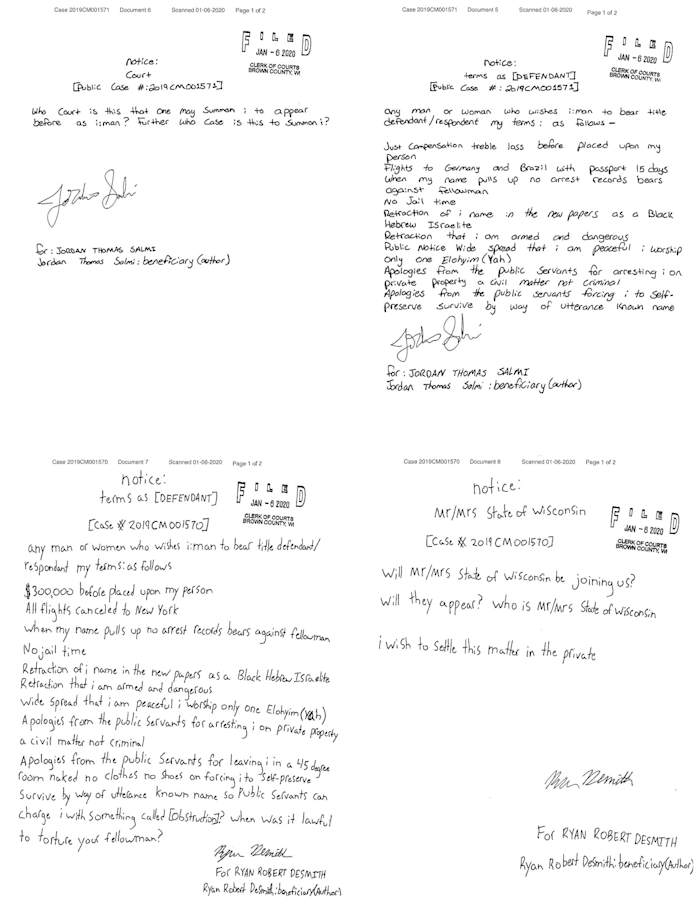 Case 2019CM001571 Document 6 Scanned 01-06-2020 Page 1 of 2
FILED
JAN - 6 2020
CLERK OF COURTS
BROWN COUNTY, WI
notice:
Court
[Public Case #:2019CM001571]
Who Court is this that one may Summon i to appear
before as i:man? Further who Case is this to Summon i?
for: JORDAN THOMAS SALMI
Jordan Thomas Salmi: beneficiary (author)
Case 2019CM001571 Document 5 Scanned 01-06-2020 Page 1 of 2
FILED
JAN - 6 2020
CLERK OF COURTS
BROWN COUNTY, WI
notice:
terms as [DEFENDANT]
[Public Case #: 2019CM001571]
any man or woman who wishes i:man to bear title
defendant/respondent my terms: as follows -
Just Compensation treble loss before placed upon my
person
Flights to Germany and Brazil with passport 15 days
When my name pulls up no arrest records bears
against fellowman
No Jail time
Retraction of i name in the new papers as a Black
Hebrew Israelite
Retraction that i am armed and dangerous
Public Notice Wide spread that i am peaceful i worship
only one Elohyim (Yah)
Apologies from the public Servants for arresting i on
private property a civil matter not criminal
Apologies from the public servants forcing i to self-
preserve survive by way of utterance known name
for: JORDAN THOMAS SALMI
Jordan Thomas Salmi: beneficiary (author)
Case 2019CM001570 Document 7 Scanned 01-06-2020 Page 1 of 2
notice:
terms as [DEFENDANT]
FILED
JAN - 6 2020
CLERK OF COURTS
BROWN COUNTY, WI
[Case # 2019CM001570]
any man or women who wishes i:man to bear title defendant/
respondent my terms: as follows
$300,000 before placed upon my person
All flights canceled to New York
when my name pulls up no arrest records bears against fellowman
No jail time
Retraction of i name in the new papers as a Black Hebrew Israelite
Retraction that i am armed and dangerous
Wide spread that i am peaceful i worship only one Elohyim (Yah)
Apologies from the public Servants for arresting i on private property
a civil matter not criminal
Apologies from the public Servants for leaving i in a 45 degree
room naked no clothes no shoes on forcing i to self-preserve
Survive by way of utterance known name so Public Servants can
charge i with something called [Obstruction]? When was it lawful
to torture your fellowman?
Ryan Desmith
For RYAN ROBERT DESMITH
Ryan Robert Desmith: beneficiary(Author)
Case 2019CM001570 Document 8 Scanned 01-06-2020 Page 1 of 2
notice:
Mr/Mrs State of Wisconsin
FILED
JAN - 6 2020
CLERK OF COURTS
BROWN COUNTY, WI
[Case # 2019CM001570]
Will Mr/Mrs State of Wisconsin be joining us?
Will they appear? Who is Mr/Mrs State of Wisconsin
i wish to settle this matter in the private
Ryan Desmith
For RYAN ROBERT DESMITH
Ryan Robert Desmith: beneficiary(Author)